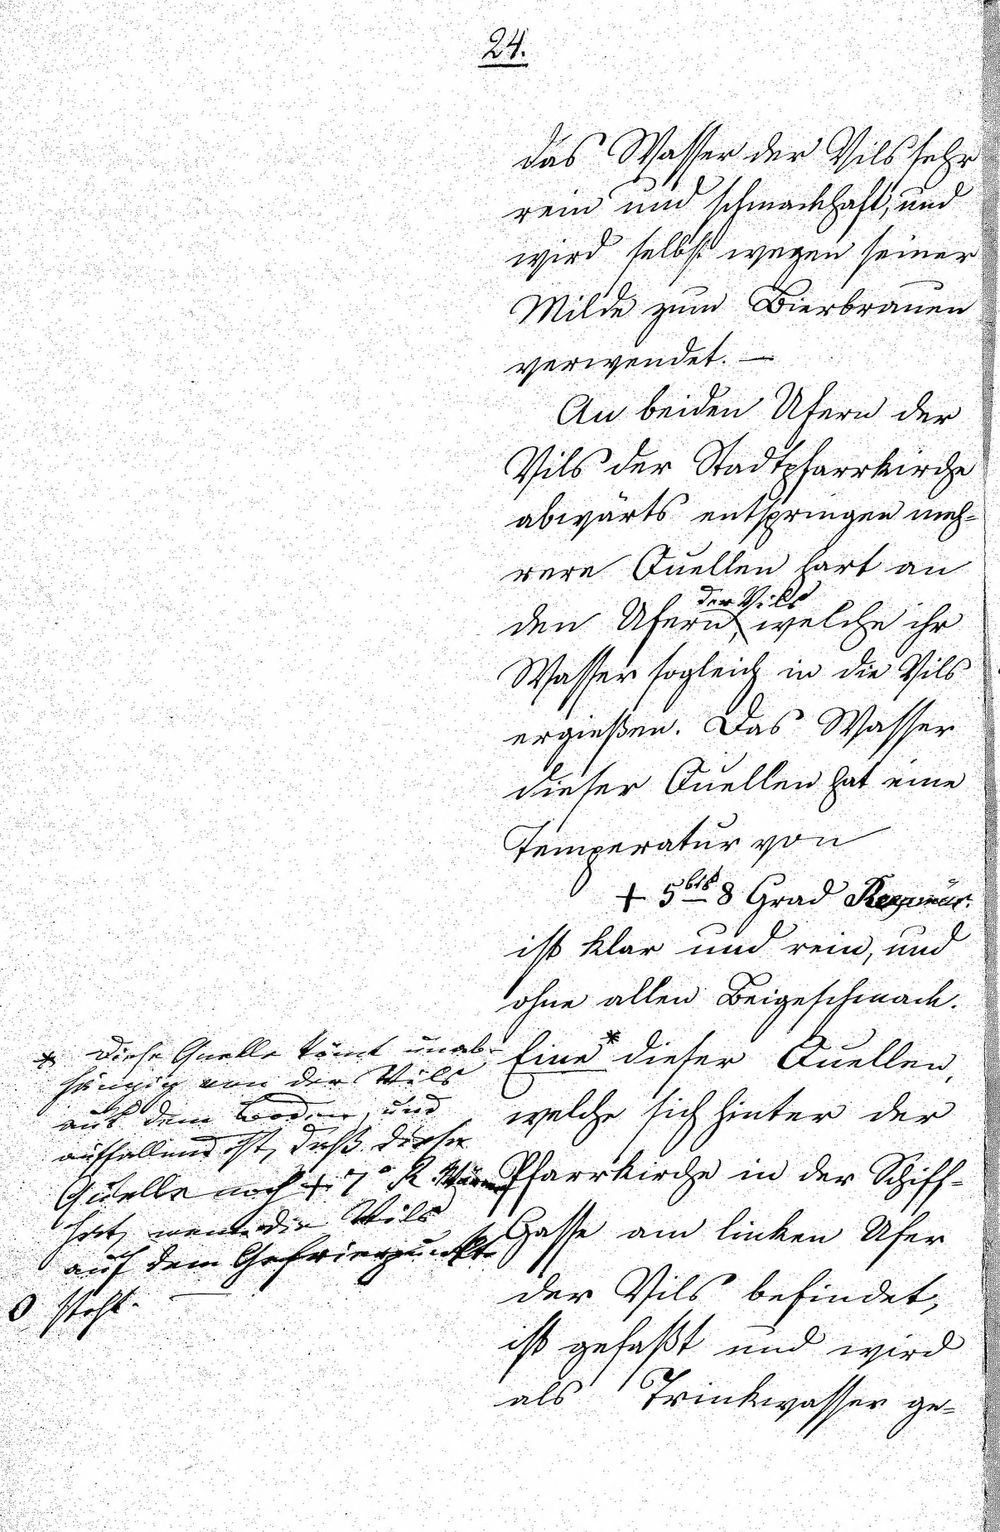 24.
das Wasser der Vils sehr
rein und schmackhaft, und
wird selbst wegen seiner
Milde zum Bierbrauen
verwendet. —
An beiden Ufern der
Vils der Stadtpfarrkirche
abwärts entspringen meh-
rere Quellen hart an
der Vils
den Ufern, welche ihr
Wasser sogleich in die Vils
ergießen. Das Wasser
dieser Quellen hat eine
Temperatur von
+ 5 bis 8 Grad Reaumür.
ist klar und rein, und
ohne allen Beigeschmack.
Eine * dieser Quellen,
welche sich hinter der
Pfarrkirche in der Schiff-
Gasse am linken Ufer
der Vils befindet,
ist gefaßt und wird
als Trinkwasser ge-
* Diese Quelle kömt unab-
hängig von der Vils
aus dem Boden, und
auffallend ist, daß diese
Quelle noch + 7° R. Wärme
hat, wenn die Vils
auf dem Gefrierpunkte
0 steht. —